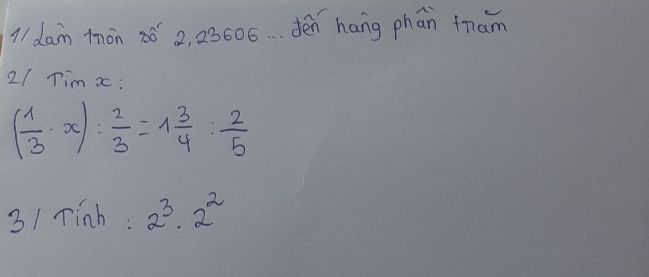 1/ Làm tròn số 2,23606... đến hàng phần trăm
2/ Tìm x:
(1/3 . x) : 2/3 = 1 3/4 : 2/5
3/ Tính : 2³ . 2²